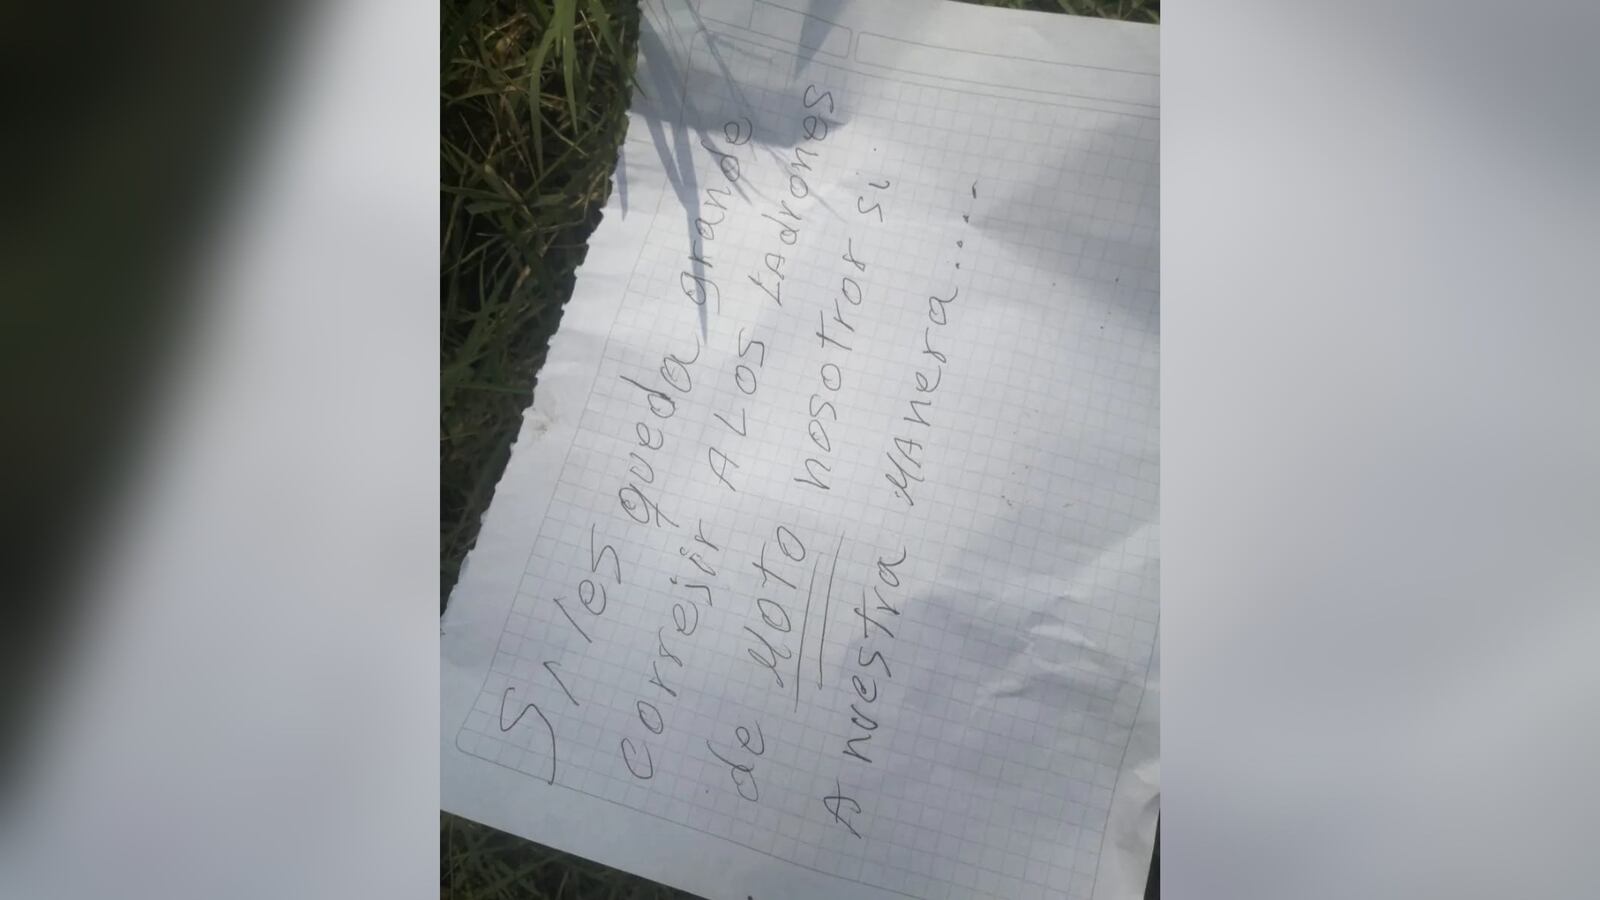 Si les queda grande
corresir A LOS LAdrones
de MOTO nosotros si
A nuestra MAnera.....